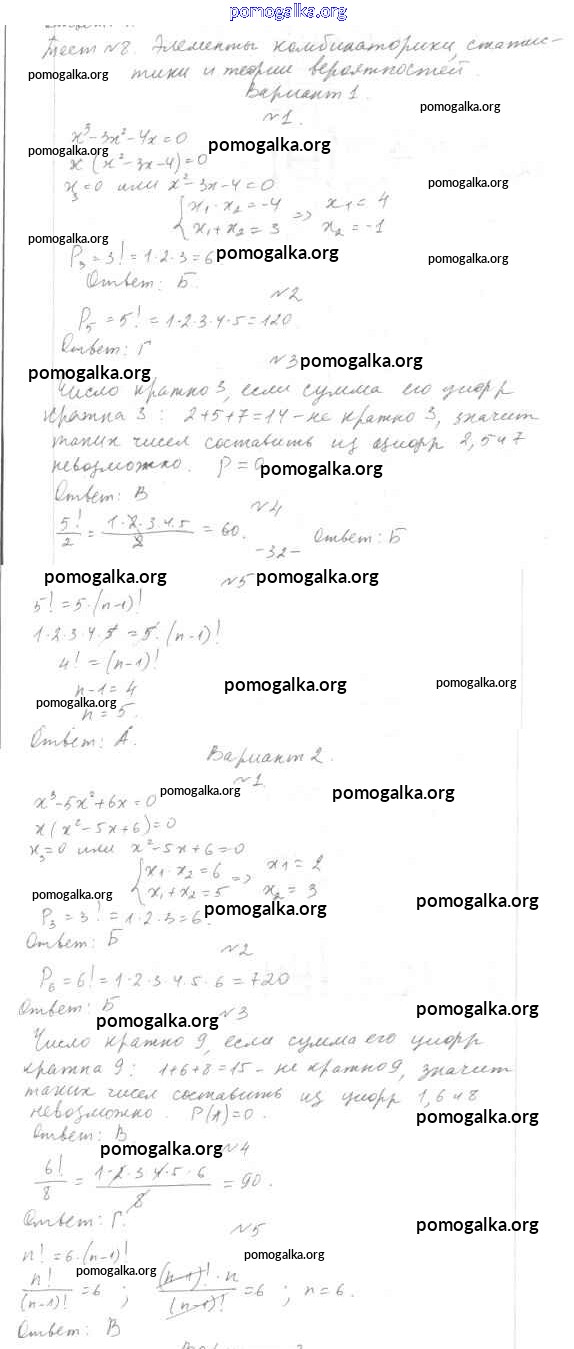 pomogalka.org
Тест №8. Элементы комбинаторики, статис-
pomogalka.org тики и теории вероятностей.
Вариант 1.
pomogalka.org
№1.
x³-3x²-4x=0
pomogalka.org
pomogalka.org x(x²-3x-4)=0
x₃=0 или x²-3x-4=0 pomogalka.org
{x₁·x₂=-4 => x₁=4
x₁+x₂=3 x₂=-1
pomogalka.org
P₃=3!=1·2·3=6 pomogalka.org pomogalka.org
Ответ: Б.
№2
P₅=5!=1·2·3·4·5=120.
Ответ: Г
№3 pomogalka.org
pomogalka.org
Число кратно 3, если сумма его цифр
кратна 3: 2+5+7=14 - не кратно 3, значит
таких чисел составить из цифр 2,5 и 7
невозможно. P=0 pomogalka.org
Ответ: В
№4
5!/2 = 1·2·3·4·5/2 = 60. Ответ: Б
-32-
pomogalka.org №5 pomogalka.org
5!=5·(n-1)!
1·2·3·4·5=5·(n-1)!
4!=(n-1)!
n-1=4 pomogalka.org pomogalka.org
pomogalka.org
n=5.
Ответ: А.
Вариант 2.
№1
x³-5x²+6x=0 pomogalka.org pomogalka.org
x(x²-5x+6)=0
x₃=0 или x²-5x+6=0
{x₁·x₂=6 => x1=2
pomogalka.org x₁+x₂=5 x₂=3 pomogalka.org
P₃=3!=1·2·3=6. pomogalka.org
Ответ: Б
№2
P₆=6!=1·2·3·4·5·6=720
Ответ: Б pomogalka.org
pomogalka.org №3
Число кратно 9, если сумма его цифр
кратна 9: 1+6+8=15 - не кратно 9, значит
таких чисел составить из цифр 1,6 и 8
невозможно. P(A)=0. pomogalka.org
Ответ: В
pomogalka.org №4
6!/8 = 1·2·3·4·5·6/8 = 90.
Ответ: Г.
№5 pomogalka.org
n!=6·(n-1)! pomogalka.org
pomogalka.org
n!/(n-1)! =6 ; (n-1)!·n/(n-1)! =6 ; n=6.
Ответ: В